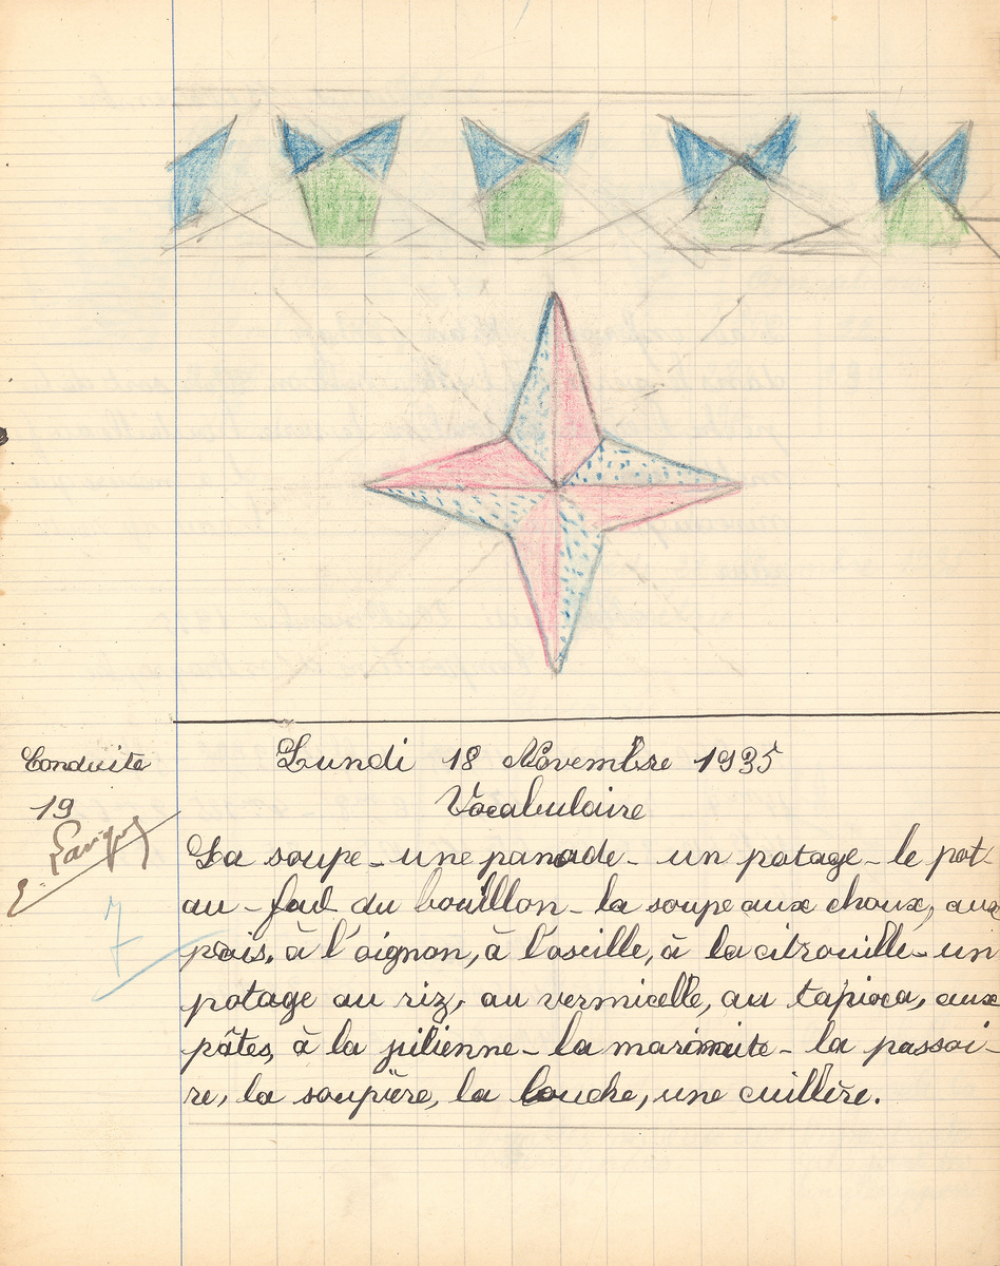 Conduite
19
7
Lundi 18 Novembre 1935
Vocabulaire
La soupe - une panade - un potage - le pot-
au-feu du bouillon - la soupe aux choux, aux
pois, à l'oignon, à l'oseille, à la citrouille - un
potage au riz, au vermicelle, au tapioca, aux
pâtes, à la julienne - la marmite - la passoi-
re, la soupière, la louche, une cuillère.